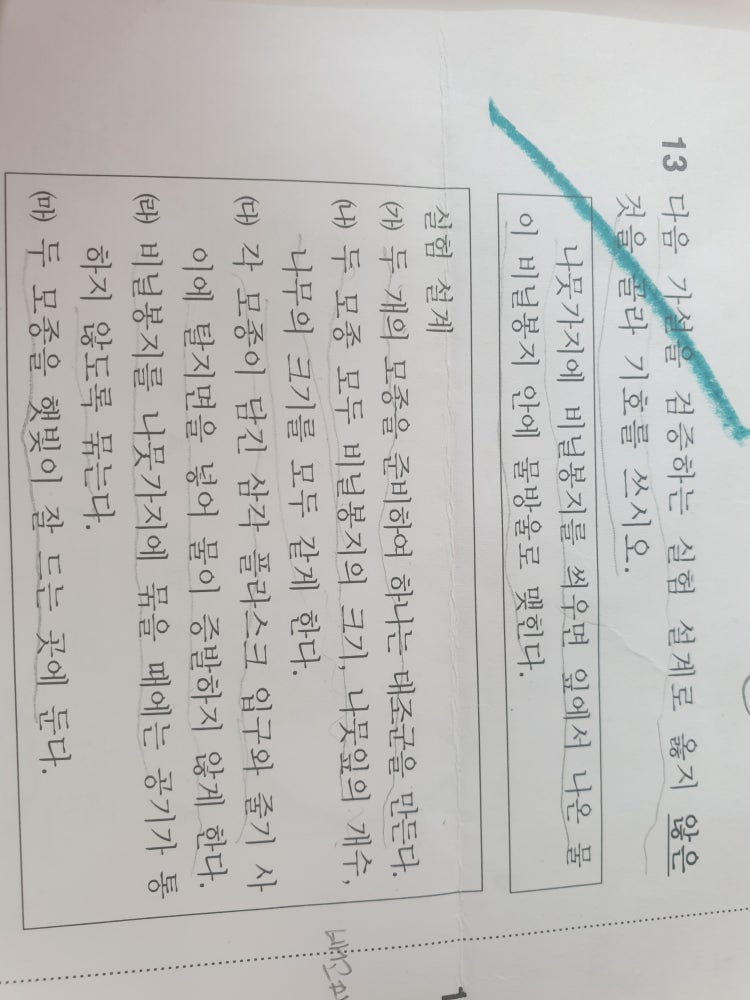 13 다음 가설을 검증하는 실험 설계로 옳지 않은
것을 골라 기호를 쓰시오.
나뭇가지에 비닐봉지를 씌우면 잎에서 나온 물
이 비닐봉지 안에 물방울로 맺힌다.
실험 설계
㈎ 두 개의 모종을 준비하여 하나는 대조군을 만든다.
㈏ 두 모종 모두 비닐봉지의 크기, 나뭇잎의 개수,
나무의 크기를 모두 같게 한다.
㈐ 각 모종이 담긴 삼각 플라스크 입구와 줄기 사
이에 탈지면을 넣어 물이 증발하지 않게 한다.
㈑ 비닐봉지를 나뭇가지에 묶을 때에는 공기가 통
하지 않도록 묶는다.
㈒ 두 모종을 햇빛이 잘 드는 곳에 둔다.
1